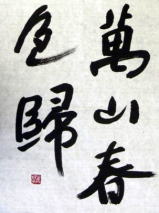 萬山春
色歸